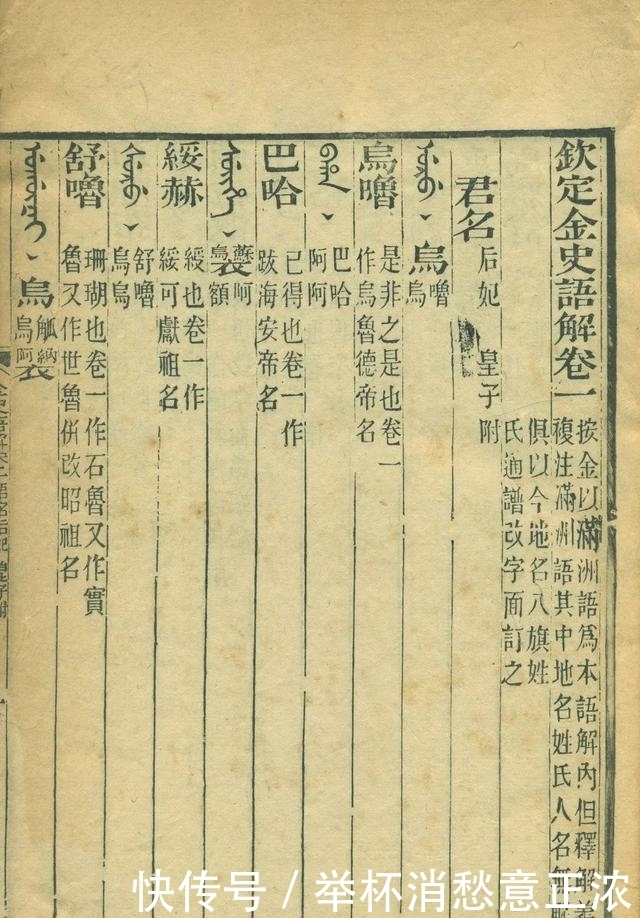 欽定金史語解卷一
按金以滿洲語爲本語解內但釋解義
複注滿洲語其中地名姓氏人名無
俱以今地名八旗姓
氏通譜改字面訂之
君名 后妃 皇子附
烏烏嚕烏
烏嚕
是非之是也卷一
作烏魯德帝名
巴哈
阿阿
巴哈
已得也卷一作
跋海安帝名
呵
額
綏赫
綏也卷一作
綏可獻祖名
舒嚕
烏烏
舒嚕
珊瑚也卷一作石魯又作實
魯又作世魯併改昭祖名
烏
烏阿
快传号 / 举杯消愁意正浓